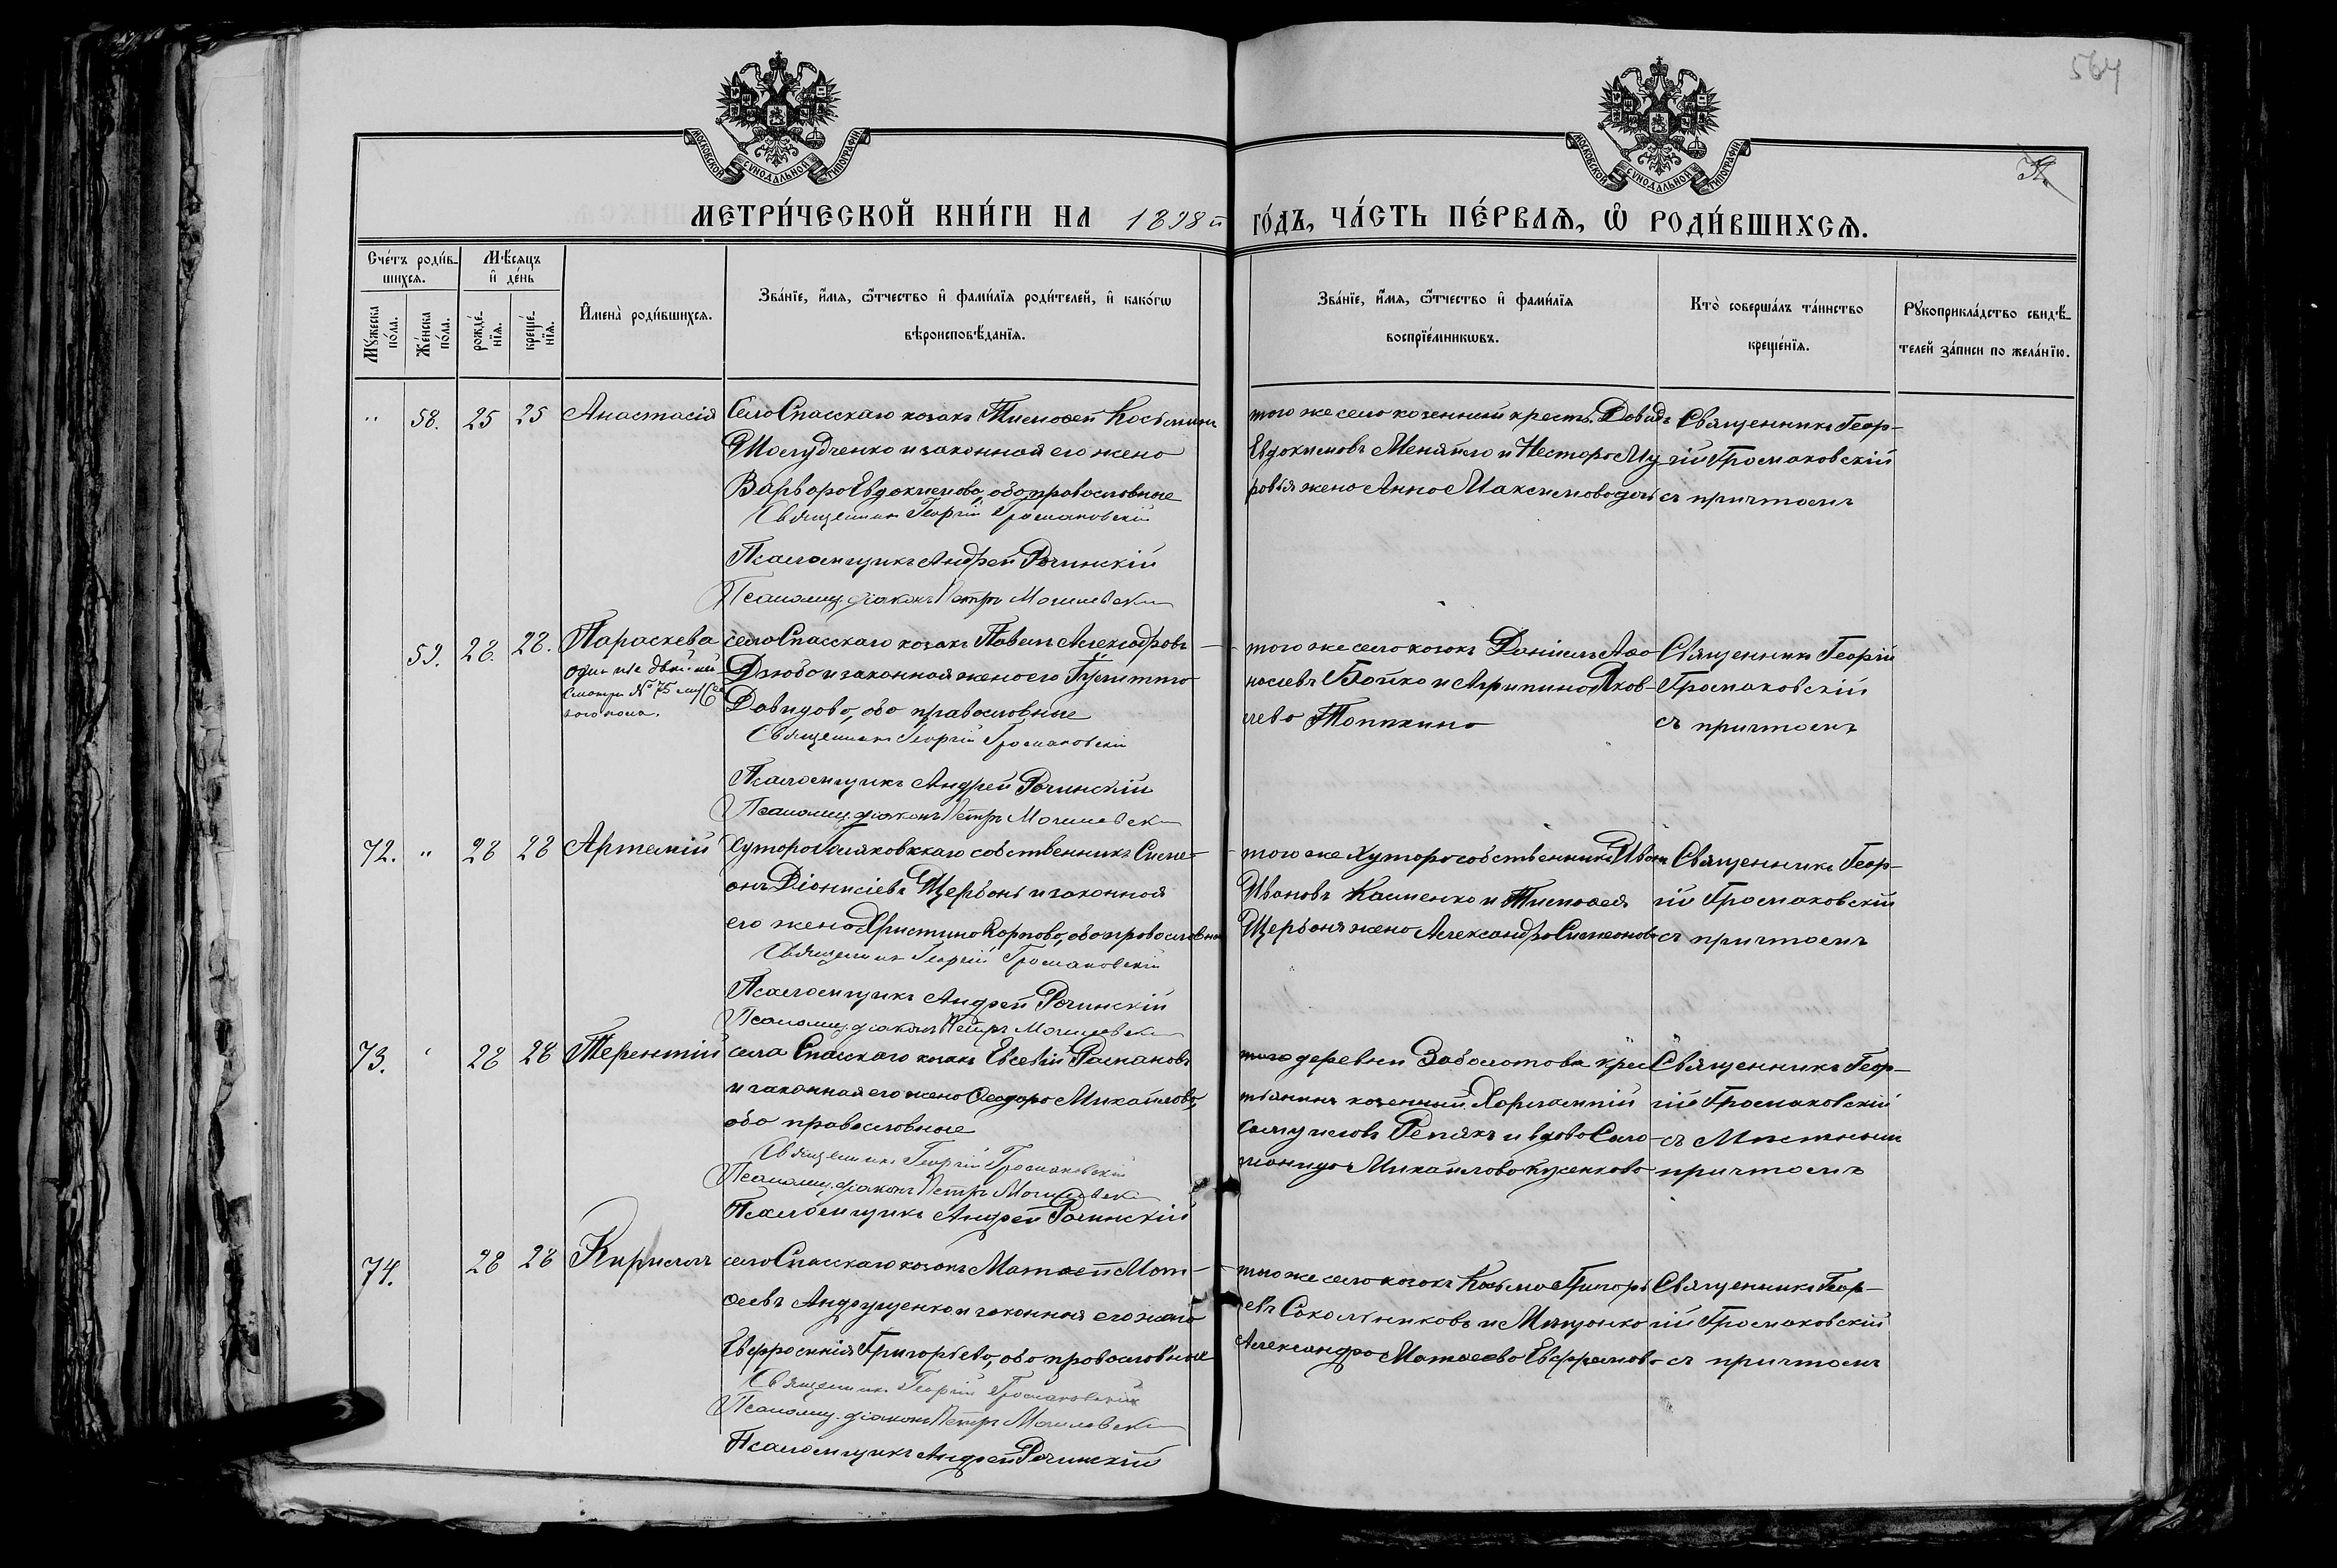 564
МОСКОВСКОЙ СУНОДАЛЬНОЙ ТИПОГРАФІИ
МОСКОВСКОЙ СУНОДАЛЬНОЙ ТИПОГРАФІИ
МЕТРИ́ЧЕСКОЙ КНИ́ГИ НА 1898 й ГО́ДЪ, ЧА́СТЬ ПЕ́РВАѦ, Ѽ РОДИ́ВШИХСѦ.
Сче́тъ роди́в-
шихся.
Мѣ́сяцъ
и҆ де́нь
Мꙋ́жеска по́ла.
Же́нска по́ла.
рожде́-
нїя.
креще́-
нїя.
И҆мена̀ роди́вшихся.
Зва́нїе, и҆́мя, ѻ҆́тчество и҆ фами́лїя роди́телей, и҆ како́гѡ
вѣроисповѣ́данїя.
Зва́нїе, и҆́мя, ѻ҆́тчество и҆ фами́лїя
воспрїе́мникѡвъ.
Кто̀ соверша́лъ та́инство
креще́нїя.
Рꙋкоприкла́дство свидѣ́-
телей за́писи по жела́нїю.
" 58. 25 25 Анастасія
Села Спасскаго козакъ Тимоѳей Косьминъ
и законная его жена
Варвара Евдокимова, оба православные
Священникъ Георгій Громаковскій
Псаломщикъ Андрей Рачинскій
Псаломщ. діаконъ Петръ Могилевскі
того же села казенный крест. Давидъ
Евдокимовъ Меняйло и Нестора
жена Анна Максимова дочь
Священникъ Геор-
гій Громаковскій
съ причтомъ
59. 28. 28. Параскева
одна изъ двойни
Смотри № 75
села Спасскаго козакъ Павелъ Александровъ
Дзюба и законная жена его
Давидова, оба православные
Священникъ Георгій Громаковскій
Псаломщикъ Андрей Рачинскій
Псаломщ. діаконъ Петръ Могилевскі
того же села козакъ Даніилъ Аѳа-
насіевъ Бойко и Агрипина Яков-
лева
Священникъ Георгій
Громаковскій
съ причтомъ
72. " 28 28 Артемій
Хутора собственникъ Симе-
онъ Діонисіевъ Щербань и законная
его жена Христина Карпова, оба православные
Священникъ Георгій Громаковскій
Псаломщикъ Андрей Рачинскій
Псаломщ. діаконъ Петръ Могилевскі
того же хутора собственникъ Иванъ
Ивановъ Касменко и Тимоѳея
Щербаня жена Александра Симеонова
Священникъ Геор-
гій Громаковскій
съ причтомъ
73. 28 28 Терентій
села Спасскаго козакъ Евсевій Романовъ
и законная его жена Ѳеодора Михайлова,
оба православные
Священникъ Георгій Громаковскій
Псаломщ. діаконъ Петръ Могилевскі
Псаломщикъ Андрей Рачинскій
деревни Заболотова крес
тьянинъ казенный Харлампій
Самуиловъ Репякъ и вдова Соло-
монида Михайлова
Священникъ Геор-
гій Громаковскій
съ Мѣстнымъ
причтомъ
74. 28 28 Кириллъ
села Спасскаго козакъ Матѳей Мат-
ѳеевъ Андрущенко и законная его жена
Евфросинія Григорьева, оба православные
Священникъ Георгій Громаковскій
Псаломщ. діаконъ Петръ Могилевскі
Псаломщикъ Андрей Рачинскій
того же села козакъ Косьма Григорь
евъ Сокольниковъ и Мѣщанка
Александра Матѳеева
Священникъ Геор-
гій Громаковскій
съ причтомъ